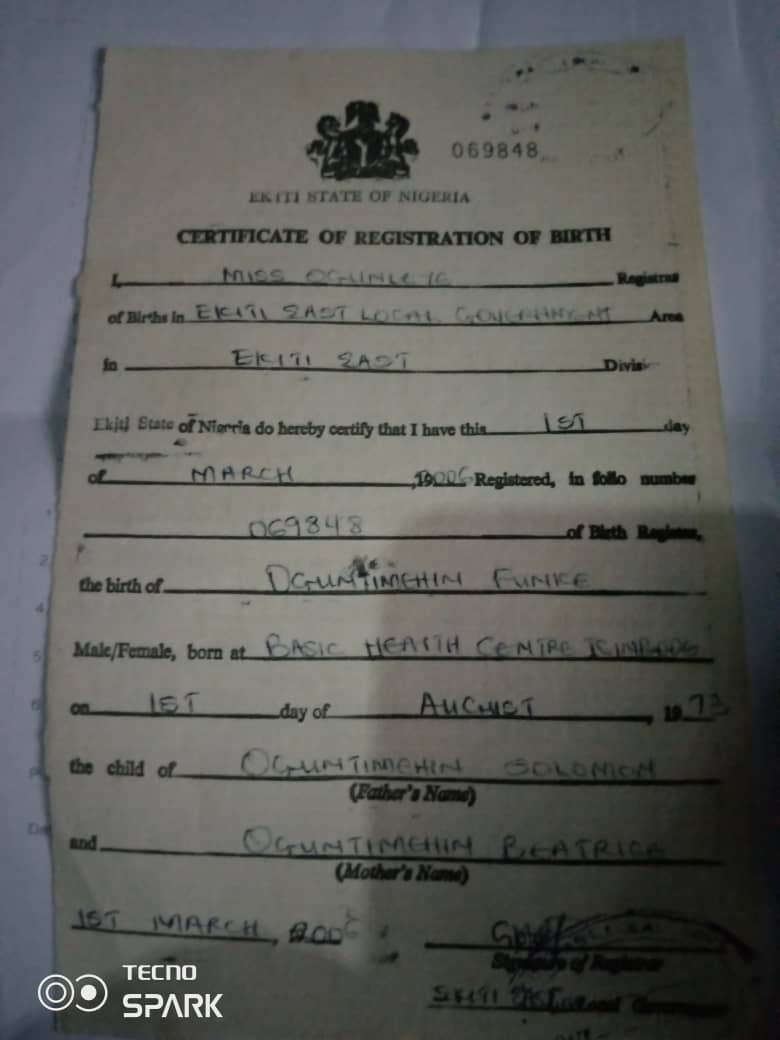 069848
EKITI STATE OF NIGERIA
CERTIFICATE OF REGISTRATION OF BIRTH
I, MISS OGUNLEYE Registrar
of Births in EKITI EAST LOCAL GOVERNMENT Area
in EKITI EAST Divis
Ekiti State of Nigeria do hereby certify that I have this 1ST day
of MARCH ,2006 Registered, in folio number
069848 of Birth Register,
the birth of OGUNTIMEHIN FUNKE
Male/Female, born at BASIC HEALTH CENTRE
on 1ST day of AUGUST , 1973
the child of OGUNTIMEHIN SOLOMON
(Father's Name)
and OGUNTIMEHIN BEATRICE
(Mother's Name)
1ST MARCH, 2006
Signature of Registrar
EKITI EAST Local Government
TECNO
SPARK